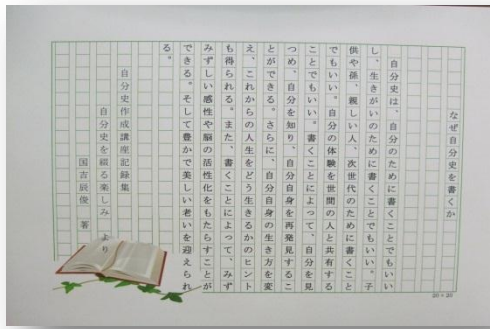 なぜ自分史を書くか
自分史は、自分のために書くことでもいい
し、生きがいのために書くことでもいい。子
供や孫、親しい人、次世代のために書くこと
でもいい。自分の体験を世間の人と共有する
ことでもいい。書くことによって、自分を見
つめ、自分を知り、自分自身を再発見するこ
とができる。さらに、自分自身の生き方を変
え、これからの人生をどう生きるかのヒント
も得られる。また、書くことによって、みず
みずしい感性や脳の活性化をもたらすことが
できる。そして豊かで美しい老いを迎えられ
る。
自分史作成講座記録集
自分史を綴る楽しみ より
国吉辰俊 著
20×20